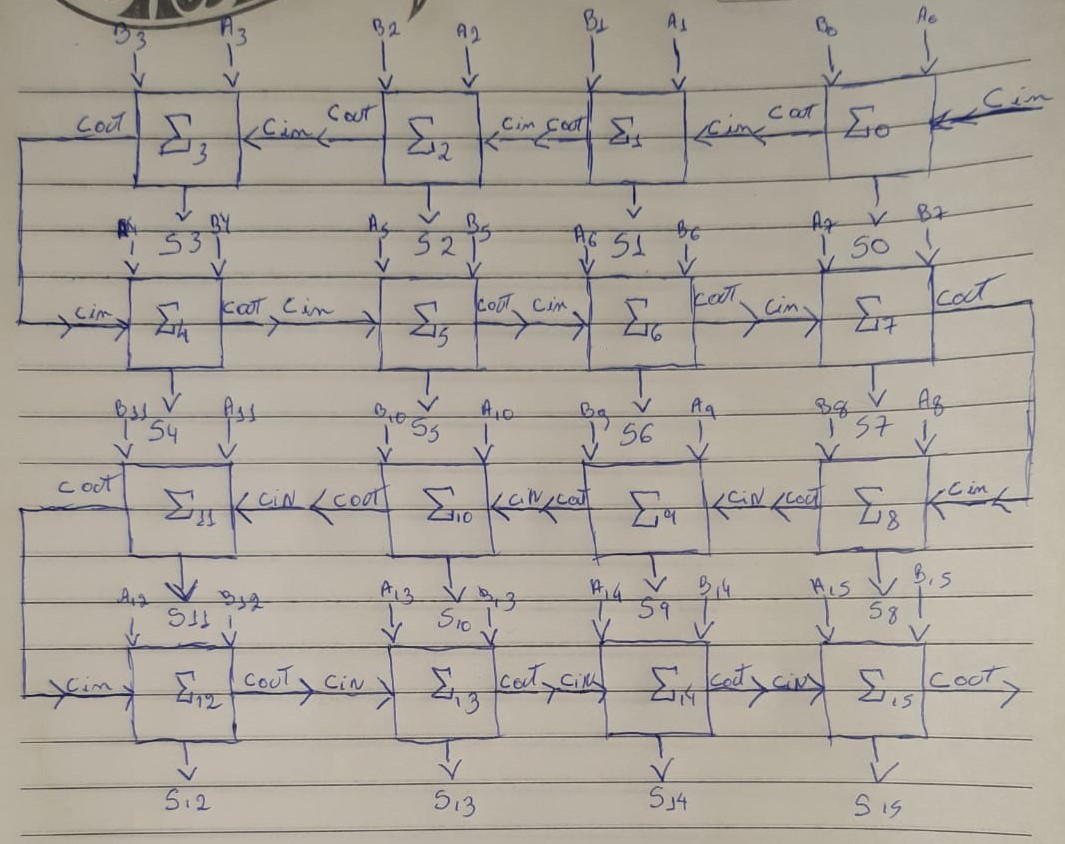 B3 A3 B2 A2 B1 A1 B0 A0
Cout Σ3 Cin Cout Σ2 Cin Cout Σ1 Cin Cout Σ0 Cin
S3 S2 S1 S0
B4 A5 B5 A6 B6 A7 B7
Cin Σ4 Cout Cin Σ5 Cout Cin Σ6 Cout Cin Σ7 Cout
S4 S5 S6 S7
B11 A11 B10 A10 B9 A9 B8 A8
Cout Σ11 CiN Cout Σ10 CiN Cout Σ9 CiN Cout Σ8 Cin
S11 S10 S9 S8
A12 B12 A13 B13 A14 B14 A15 B15
Cin Σ12 Cout CiN Σ13 Cout CiN Σ14 Cout CiN Σ15 Cout
S12 S13 S14 S15